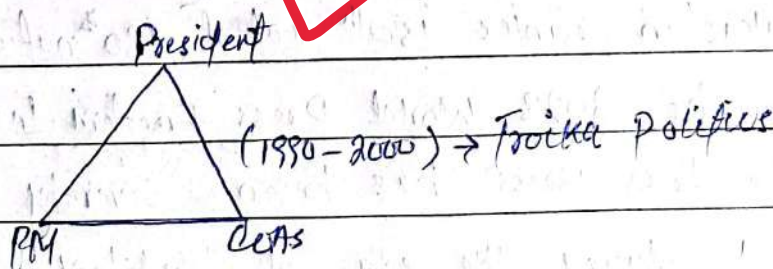 President
(1990-2000) → Troika Politics
PM COAS